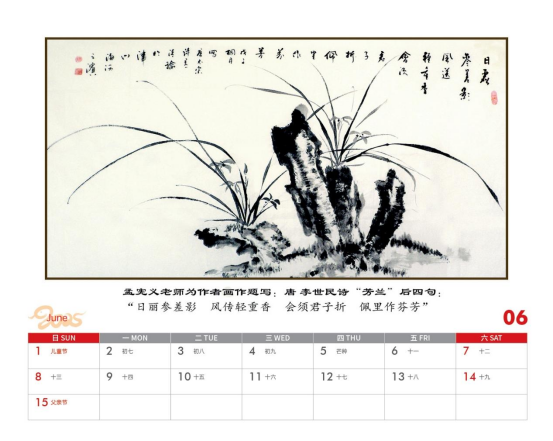 日丽
参差影
风送
轻重香
会须
君子折
佩里作芬芳
孟宪义老师为作者画作题写：唐 李世民诗“芳兰”后四句：
“日丽参差影 风传轻重香 会须君子折 佩里作芬芳”
June 2025
06
日 SUN 一 MON 二 TUE 三 WED 四 THU 五 FRI 六 SAT
1 儿童节 2 初七 3 初八 4 初九 5 芒种 6 十一 7 十二
8 十三 9 十四 10 十五 11 十六 12 十七 13 十八 14 十九
15 父亲节